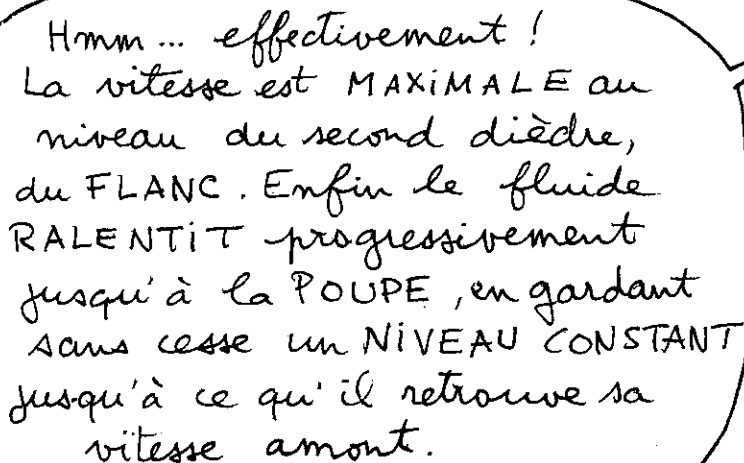 Hmm... effectivement !
La vitesse est MAXiMALE au
niveau du second dièdre,
du FLANC. Enfin le fluide
RALENTiT progressivement
jusqu'à la POUPE, en gardant
sans cesse un NiVEAU CONSTANT
jusqu'à ce qu'il retrouve sa
vitesse amont.